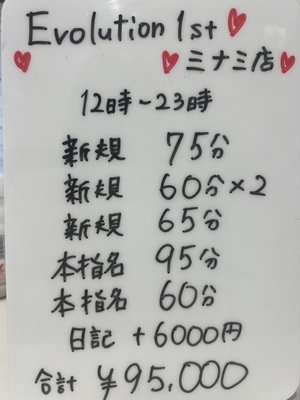 Evolution 1st
ミナミ店
12時~23時
新規 75分
新規 60分×2
新規 65分
本指名 95分
本指名 60分
日記 +6000円
合計 ¥95,000